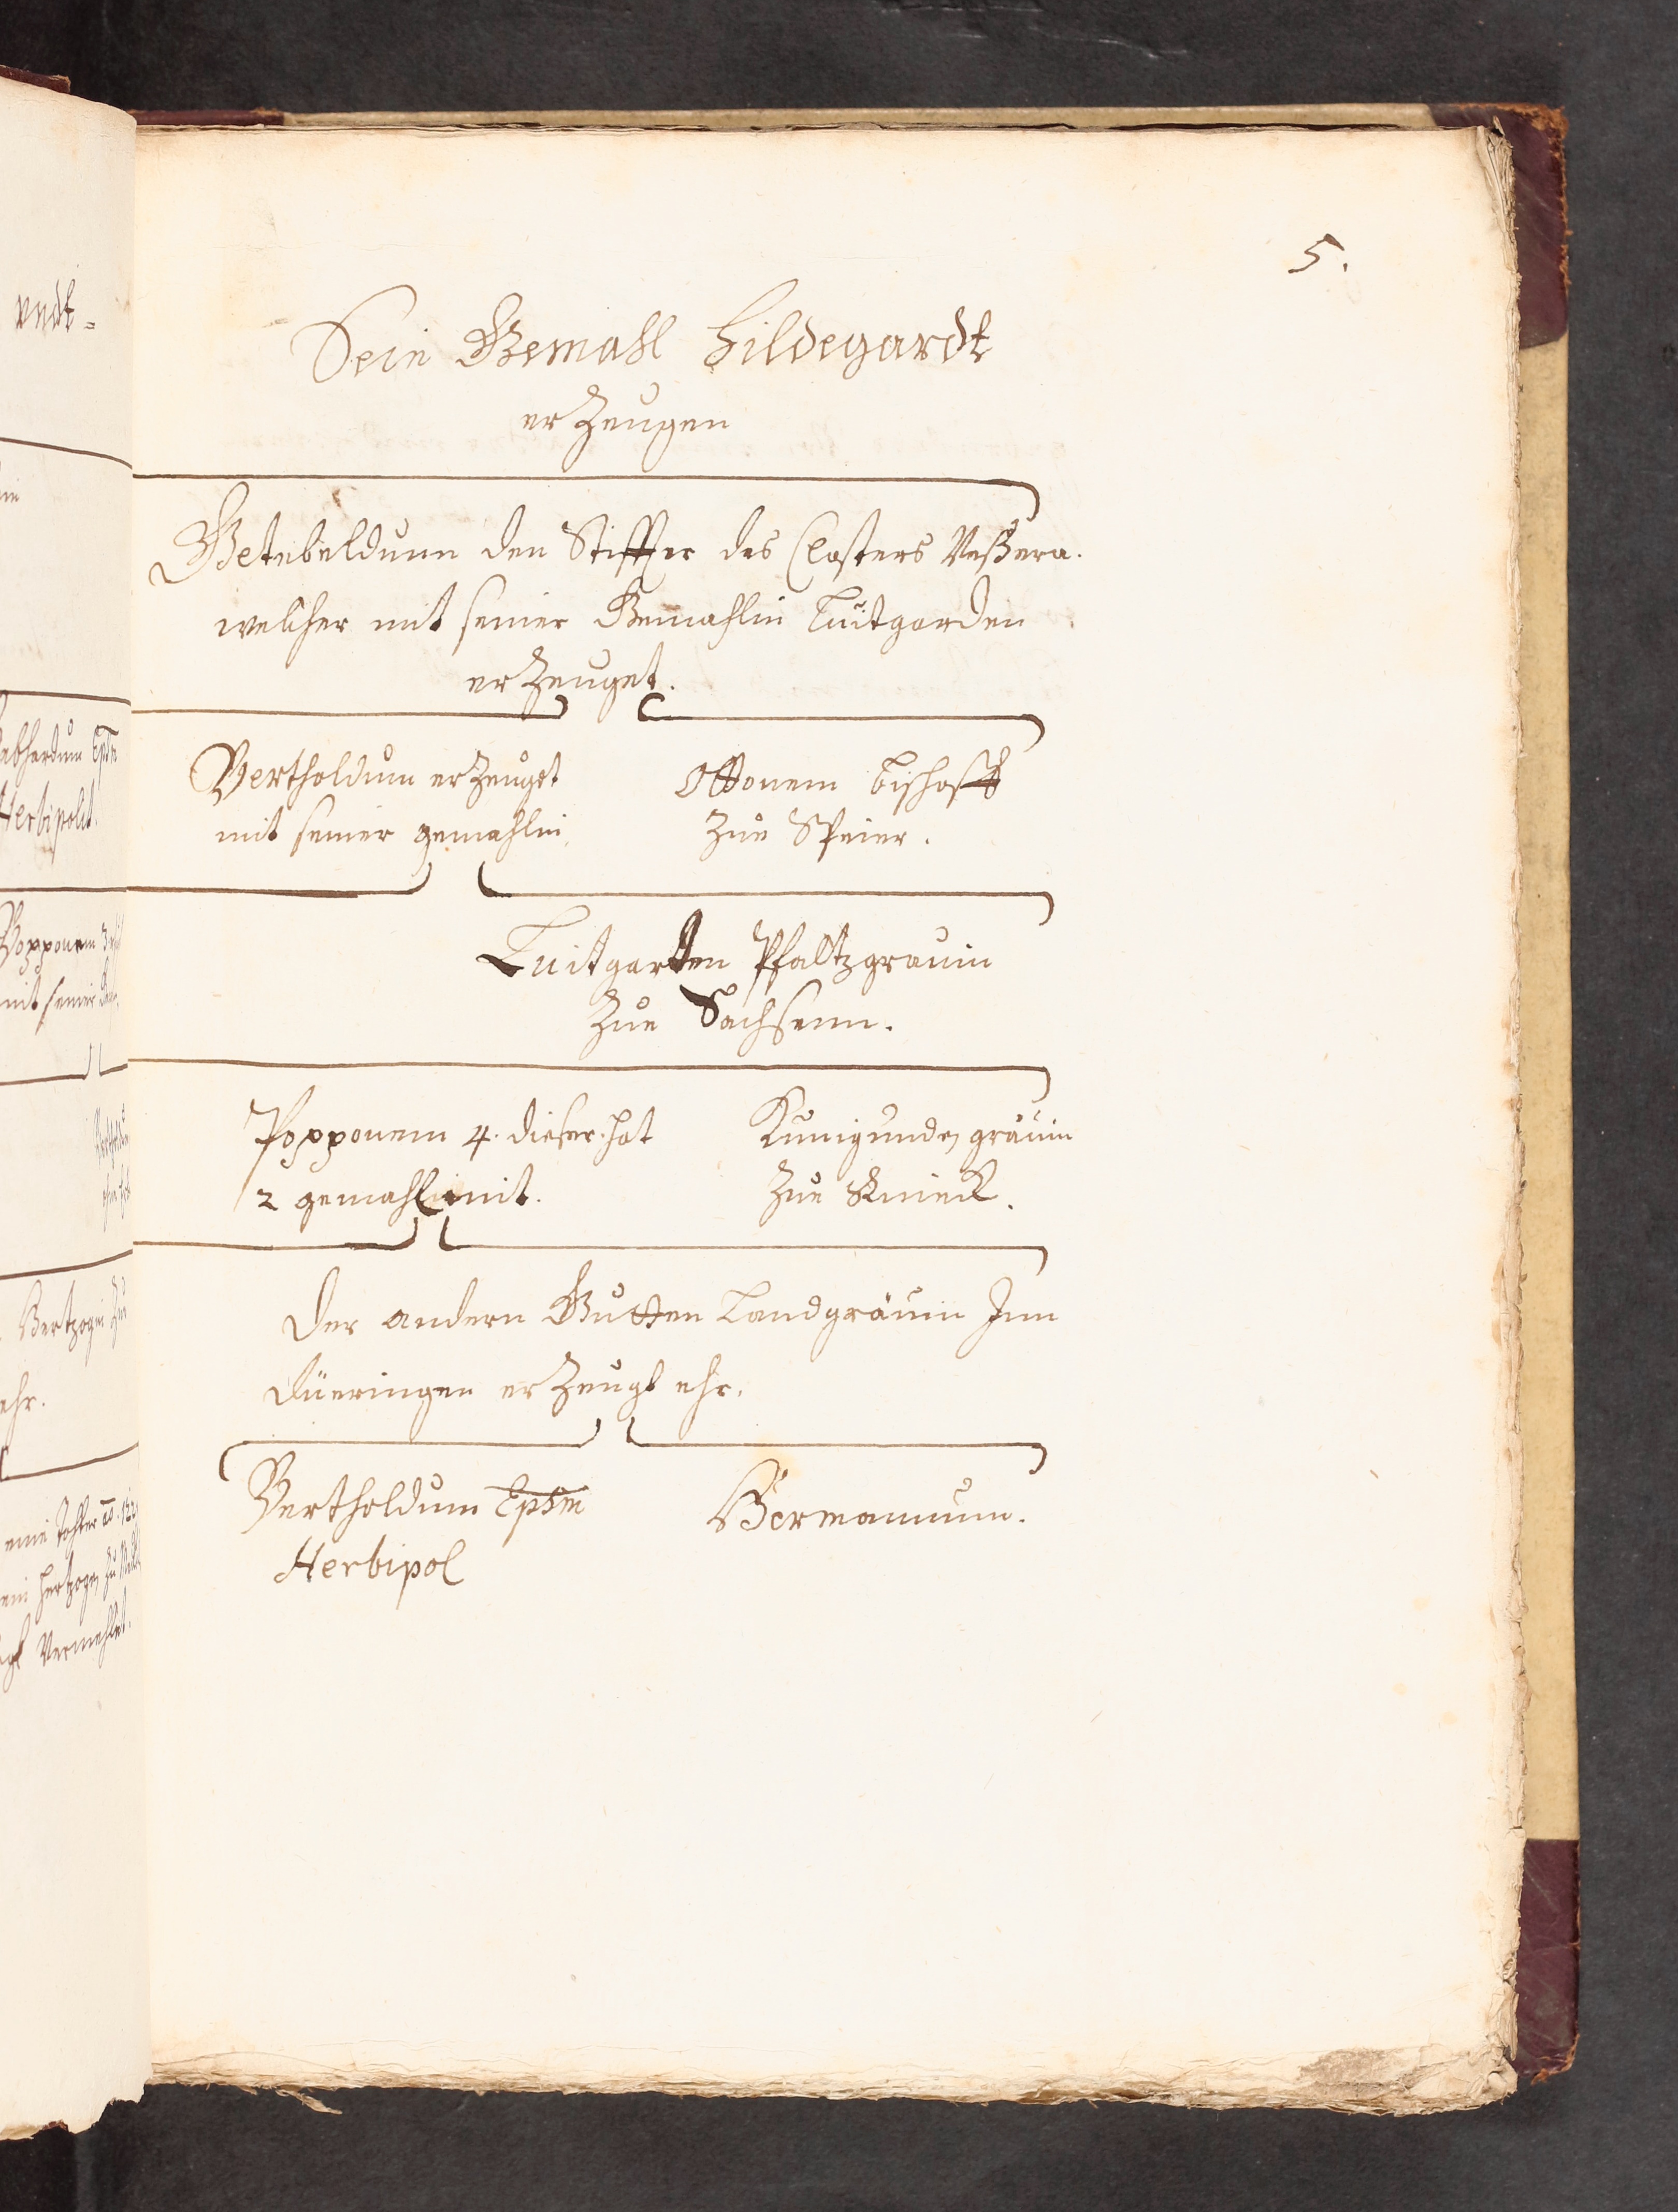 5.
Sein Gemahl Hildegardt
erZeugen
Gotebeldumm den Stiffter des Closters Veßera.
welcher mit seiner Gemahlin Luitgarden
erZeuget.
Bertholdum erZeuget
mit seiner gemahlin.
Ottonem Bischoff
Zue Speier.
Luitgarten Pfaltzgrauin
Zue Sachsenn.
Popponem 4. dieser hat
2 gemahl mit.
Kunigunden gräuin
Zue
Der andern Gutten Landgräuin Inn
Düeringen erZeugt ehr.
Bertholdum Epsm
Herbipol
Hermannum.
vndt=
Epm
Herbipolit.
Popponem 3
mit seiner
Hertzogin Zu
ehr.
eine Tohter
Hertzogen Zu
Vermehlet.